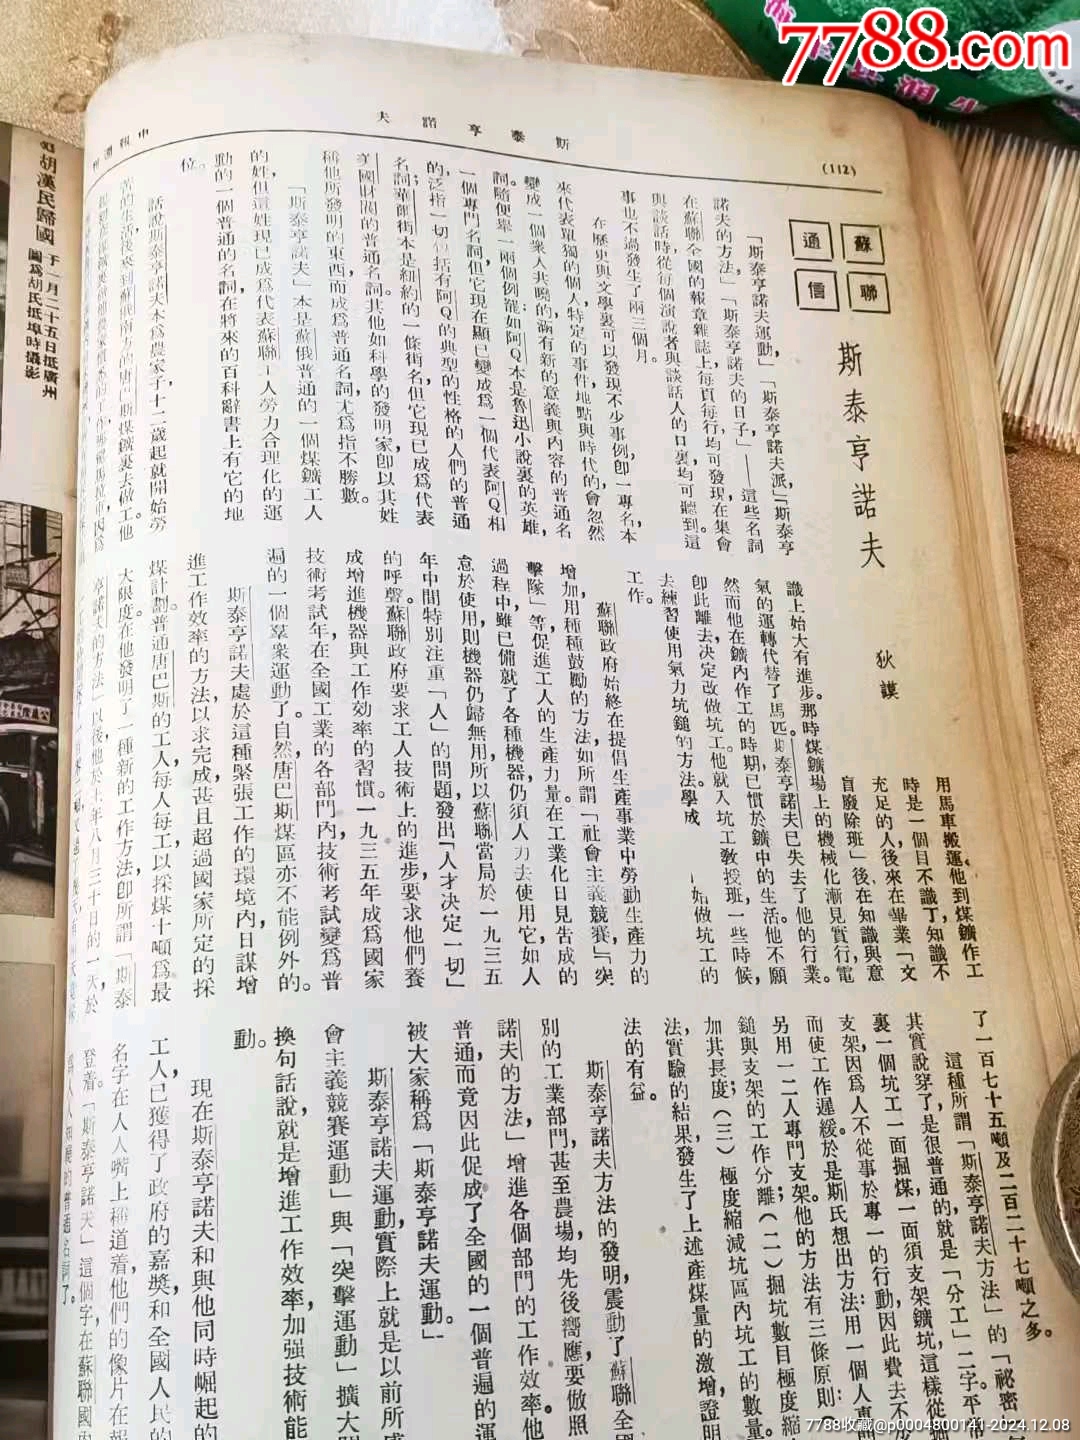 7788.com
(112)
斯泰亨諾夫
申報週刊
蘇聯
通信
斯泰亨諾夫
狄謨
「斯泰亨諾夫運動，」「斯泰亨諾夫派，」「斯泰亨
諾夫的方法，」「斯泰亨諾夫的日子，」——這些名詞
在蘇聯全國的報章雜誌上每頁每行均可發現，在集會
與談話時，從每個演說者與談話人的口裏均可聽到這
事也不過發生了兩三個月。
在歷史與文學裏可以發現不少事例，卽一專名，本
來代表單獨的個人，特定的事件，地點與時代的，會忽然
變成一個衆人共曉的，滿有新的意義與內容的普通名
詞。隨便舉一兩個例罷：如阿Q本是魯迅小說裏的英雄，
一個專門名詞，但它現在顯已變成爲一個代表阿Q相
的，泛指一切包括有阿Q的典型的性格的人們的普通
名詞；華爾街本是紐約的一條街名，但它現已成爲代表
美國財閥的普通名詞。其他如科學的發明家卽以其姓
稱他所發明的東西，而成爲普通名詞，尤爲指不勝數。
「斯泰亨諾夫」本是蘇俄普通的一個煤鑛工人
的姓，但這姓現已成爲代表蘇聯工人勞力合理化的運
動的一個普通的名詞，在將來的百科辭書上有它的地
位。
話說斯泰亨諾夫本爲農家子，十二歲起就開始勞
苦的生活，後來到蘇俄南方的唐巴斯煤鑛裏去做工。他
用馬車搬運。他到煤鑛作工
時是一個目不識丁，知識不
充足的人，後來在畢業「文
盲廢除班」後，在知識與意
識上始大有進步。那時煤鑛場上的機械化漸見實行，電
氣的運轉代替了馬匹，斯泰亨諾夫已失去了他的行業。
然而他在鑛內作工的時期已慣於鑛中的生活。他不願
卽此離去，決定改做坑工。他就入坑工敎授班，一些時候，
去練習使用氣力坑鎚的方法。學成
始做坑工的
工作。
蘇聯政府始終在提倡生產事業中勞動生產力的
增加，用種種鼓勵的方法，如所謂「社會主義競賽，」「突
擊隊」等促進工人的生產力量。在工業化日見告成的
過程中，雖已備就了各種機器，仍須人力去使用它，如人
怠於使用，則機器仍歸無用。所以蘇聯當局於一九三五
年中間特別注重「人」的問題，發出「人才決定一切」
的呼聲。蘇聯政府要求工人技術上的進步，要求他們養
成增進機器與工作效率的習慣。一九三五年成爲國家
技術考試年，在全國工業的各部門內，技術考試變爲普
遍的一個羣衆運動了。自然，唐巴斯煤區亦不能例外的。
斯泰亨諾夫處於這種緊張工作的環境內，日謀增
進工作效率的方法，以求完成，甚且超過國家所定的採
煤計劃。普通唐巴斯的工人，每人每工以採煤十噸爲最
大限度，在他發明了一種新的工作方法，卽所謂「斯泰
亨諾夫的方法」以後，他
年八月三十日的一天，於
了一百七十五噸及二百二十七噸之多。
這種所謂「斯泰亨諾夫方法」的「祕密
其實說穿了是很普通的，就是「分工」二字。平常
裏一個坑工一面掘煤，一面須支架鑛坑，這樣從掘
支架，因爲人不從事於專一的行動，因此費去不少
而使工作遲緩。於是斯氏想出方法：用一個人專
另用一二人專門支架。他的方法有三條原則：
鎚與支架的工作分離；（二）掘坑數目極度縮
加其長度；（三）極度縮減坑區內坑工的數量。
法，實驗的結果，發生了上述產煤量的激增，證明
法的有益。
斯泰亨諾夫方法的發明，震動了蘇聯全國
別的工業部門，甚至農場，均先後嚮應，要倣照
諾夫的方法」增進各個部門的工作效率。他
普通，而竟因此促成了全國的一個普遍的運
被大家稱爲「斯泰亨諾夫運動。」
斯泰亨諾夫運動，實際上就是以前所盛
會主義競賽運動」與「突擊運動」擴大
換句話說，就是增進工作效率，加强技術能
動。
現在斯泰亨諾夫和與他同時崛起的
工人已獲得了政府的嘉獎和全國人民的
名字在人人嘴上稱道着，他們的像片在報
登着。「斯泰亨諾夫」這個字在蘇聯國內
爲人人知曉的普通名詞了。
胡漢民歸國
于一月二十五日抵廣州
圖爲胡氏抵埠時攝影
7788收藏@p0004800141-2024.12.08